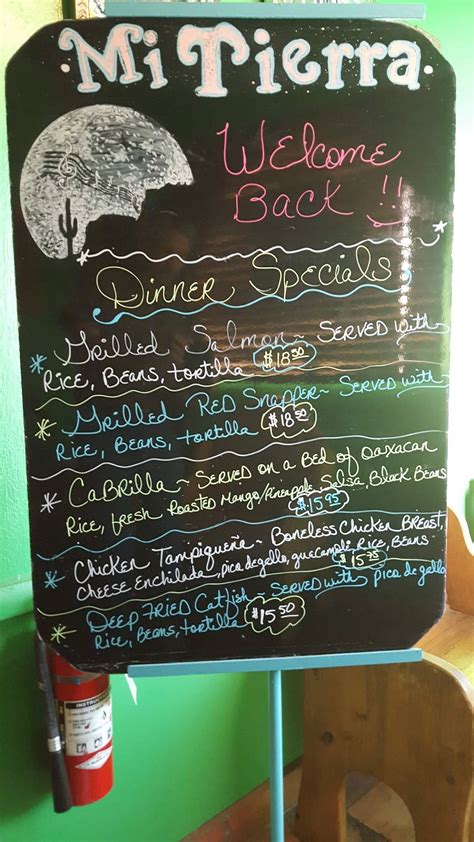 Mi Tierra
Welcome
Back!!
Dinner Specials
* Grilled Salmon ~ Served with
Rice, Beans, tortilla $18.50
* Grilled Red Snapper ~ Served with
Rice, Beans, tortilla $18.50
* Cabrilla ~ Served on a Bed of Oaxacan
Rice, fresh Roasted Mango/Pineapple Salsa, Black Beans
$15.95
* Chicken Tampiqueña ~ Boneless Chicken Breast,
Cheese Enchilada, pico de gallo, guacamole, Rice, Beans
* Deep Fried Catfish ~ Served with pico de gallo
Rice, Beans, tortilla $15.50